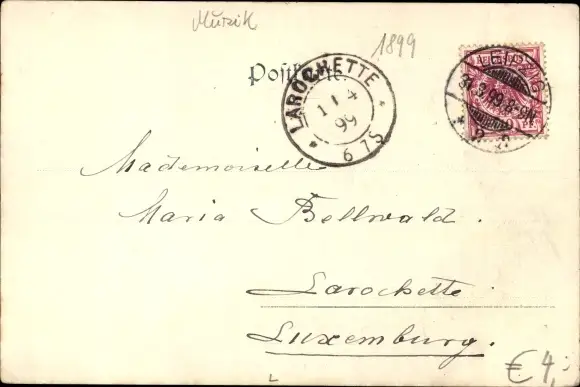 Musik
1899
Postkarte.
LAROCHETTE
1 4
99
6 7S
LEIPZIG
31.3.99.8-9N.
Mademoiselle
Maria Bellwald.
Larochette
Luxemburg.
€ 4,-